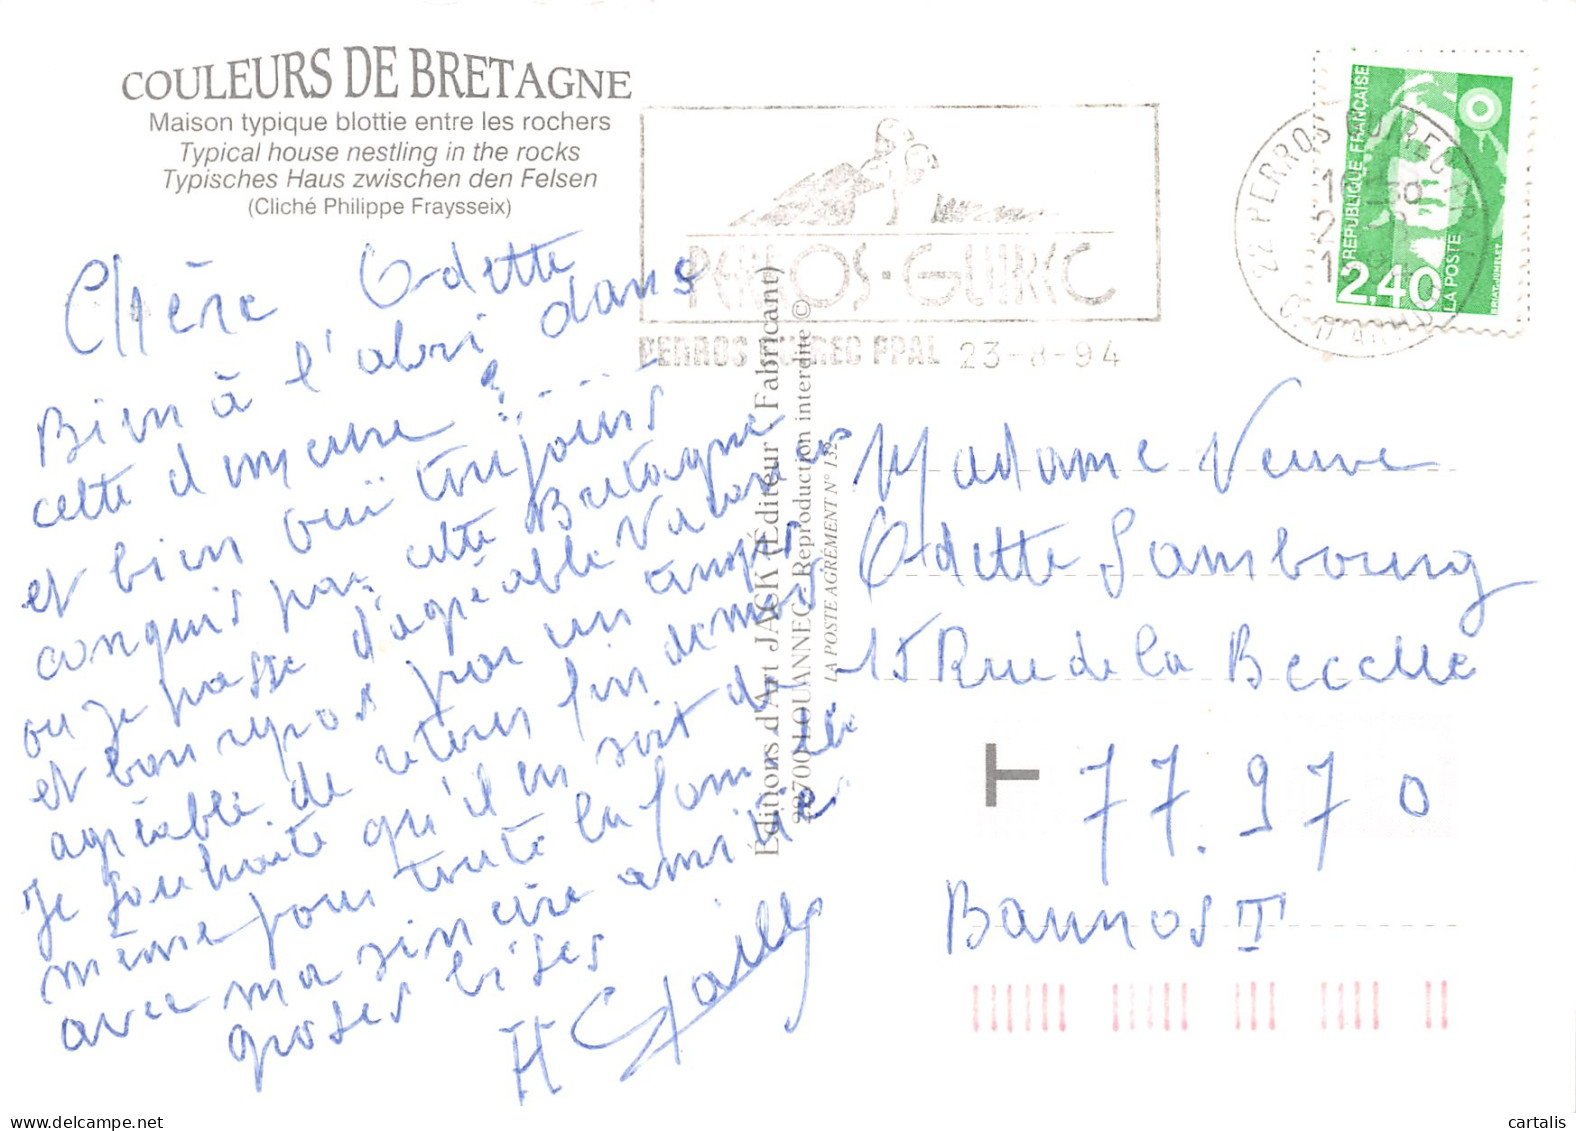 COULEURS DE BRETAGNE
Maison typique blottie entre les rochers
Typical house nestling in the rocks
Typisches Haus zwischen den Felsen
(Cliché Philippe Fraysseix)
Chère Odette
Bien à l'abri dans
cette demeure ? ....
et bien oui toujours
conquis par cette Bretagne
ou je passe d'agréable Vacances
et bon repos pour un temps
agréable. de retour fin du mois
Je souhaite qu'il en soit de
même pour toute la famille
avec ma sincère amitié
groses bises
PERROS-GUIREC
PERROS GUIREC PPAL 23-8-94
Éditions d'Art JACK (Éditeur Fabricant)
22700 LOUANNEC Reproduction interdite ©
LA POSTE AGRÉMENT N° 132
22 PERROS GUIREC PPAL
C. D'ARMOR
RÉPUBLIQUE FRANÇAISE
2,40
LA POSTE
BRIAT-JUMELET
Madame Veuve
Odette Sambourg
15 Rue de la Becelle
T 77.970
Bannost
cartalis
delcampe.net